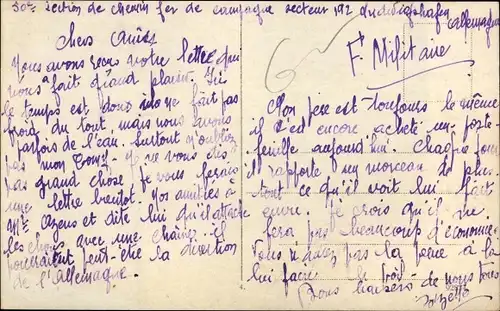 50e Section de chemin fer de campagne secteur 192 Ludwigshafen Allemagne
Chers Amis
Nous avons reçus votre lettre qui
nous a fait grand plaisir. Ici
le temps est doux il ne fait pas
froid du tout, mais nous avons
parfois de l'eau. Surtout n'oubliez
pas mon Je ne vous dis
pas grand chose je vous ferais
une lettre bientot. Nos amitiés à
Mr et dite lui qu'il attache
les avec une chaine il
pourraient peut-être la direction
de l'Allemagne.
F. Militaire
Mon père est toujours le même
il s'est encore acheté un porte
feuille aujourd'hui. Chaque jour
il rapporte un morceau de plus
tout ce qu'il voit lui fait
envie. Je crois qu'il ne
fera pas beaucoup d'économie.
Vous n'aurez pas la peine à la
lui faire le poil
Bons baisers de nous tous